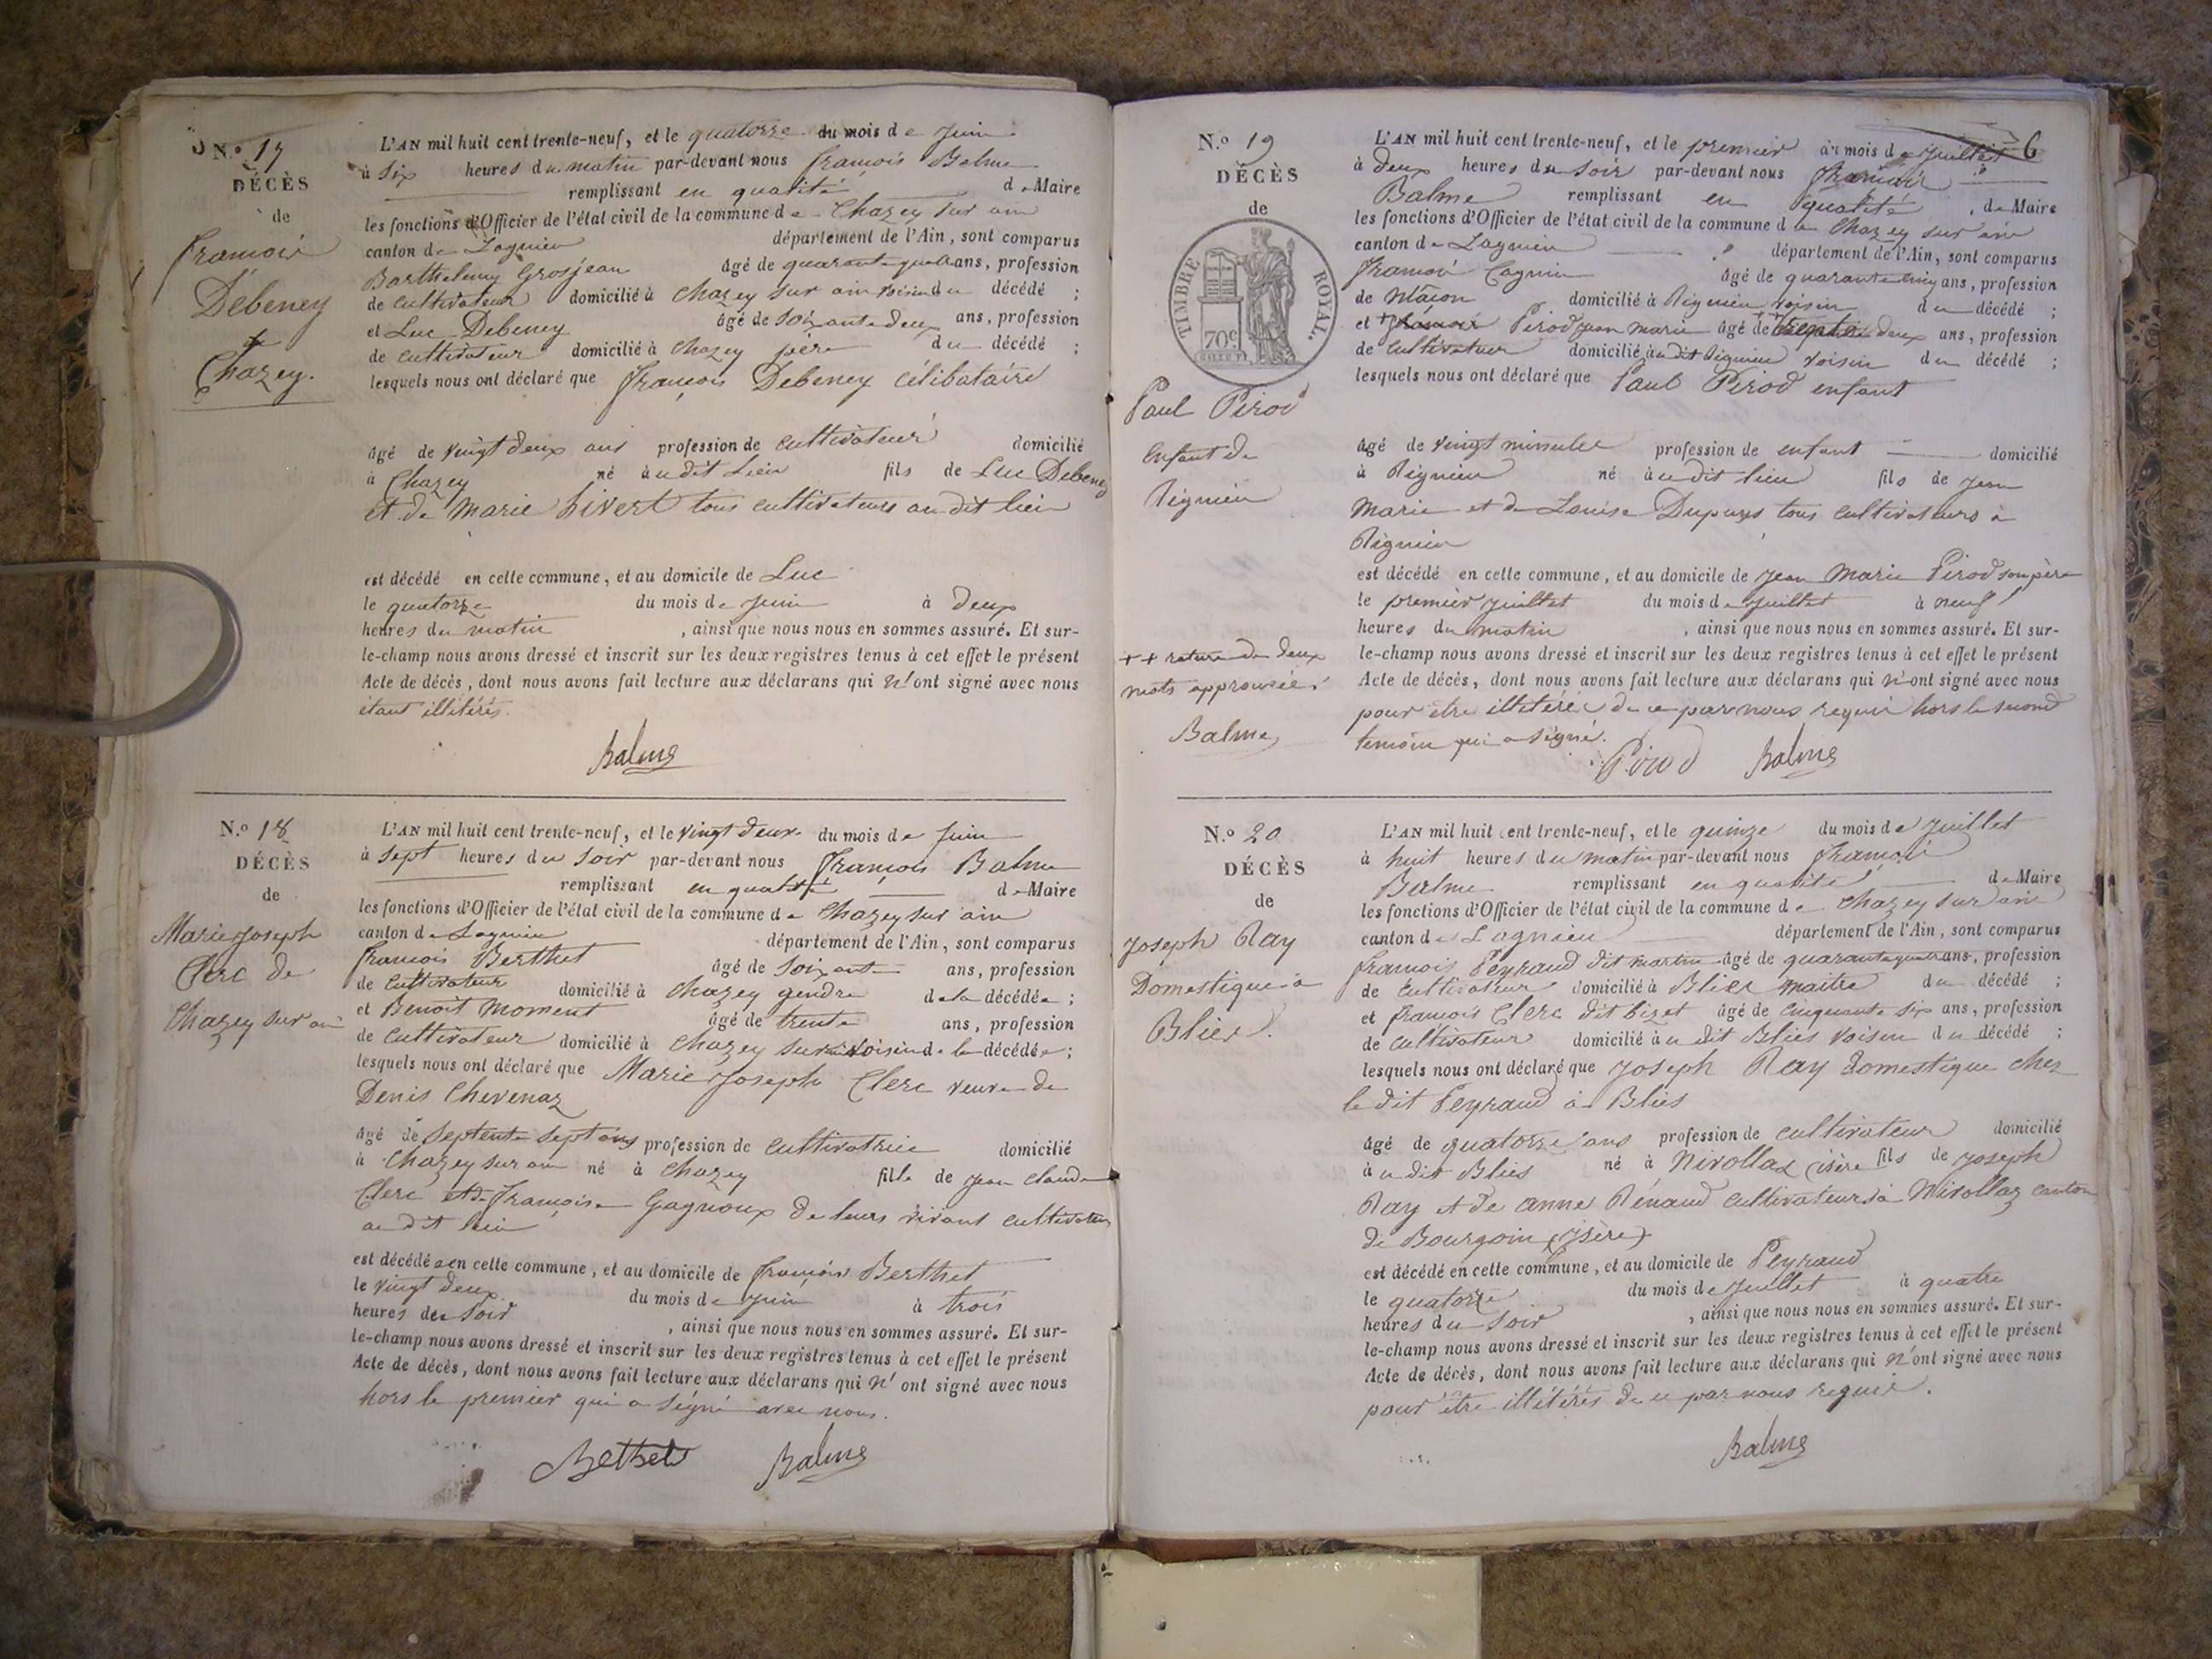 N.o 17
DÉCÈS
de
francois
Debeney
+
Chazey.
L'AN mil huit cent trente-neuf, et le quatorze du mois de Juin
à six heures du matin par-devant nous françois Balme
remplissant en qualité de Maire
les fonctions d'Officier de l'état civil de la commune de Chazey sur ain
canton de Lagnieu département de l'Ain, sont comparus
Barthelemy Grosjean âgé de quarante quatre ans, profession
de cultivateur domicilié à Chazey sur ain voisin du décédé ;
et Luc Debeney âgé de soixante deux ans, profession
de cultivateur domicilié à Chazey père du décédé ;
lesquels nous ont déclaré que françois Debeney célibataire
âgé de vingt deux ans profession de cultivateur domicilié
à Chazey né audit lieu fils de Luc Debeney
et de Marie Livert tous cultivateurs audit lieu
est décédé en cette commune, et au domicile de Luc
le quatorze du mois de Juin à deux
heures du matin , ainsi que nous nous en sommes assuré. Et sur-
le-champ nous avons dressé et inscrit sur les deux registres tenus à cet effet le présent
Acte de décès, dont nous avons fait lecture aux déclarans qui n'ont signé avec nous
étant illitérés.
Balme
N.o 18
DÉCÈS
de
Marie Joseph
Clerc de
Chazey sur ain
L'AN mil huit cent trente-neuf, et le vingt deux du mois de Juin
à sept heures du soir par-devant nous françois Balme
remplissant en qualité de Maire
les fonctions d'Officier de l'état civil de la commune de Chazey sur ain
canton de Lagnieu département de l'Ain, sont comparus
francois Berthet âgé de soixante ans, profession
de cultivateur domicilié à Chazey gendre de la décédée ;
et Benoit Moment âgé de trente ans, profession
de cultivateur domicilié à Chazey sur ain voisin de la décédée ;
lesquels nous ont déclaré que Marie Joseph Clerc veuve de
Denis Chevenaz
âgé de septente sept ans profession de cultivatrice domicilié
à Chazey sur ain né à Chazey fille de Jean Claude
Clerc et de françoise Gagnoux de leurs vivant cultivateurs
audit lieu
est décédée en cette commune, et au domicile de françois Berthet
le vingt deux du mois de Juin à trois
heures du soir , ainsi que nous nous en sommes assuré. Et sur-
le-champ nous avons dressé et inscrit sur les deux registres tenus à cet effet le présent
Acte de décès, dont nous avons fait lecture aux déclarans qui n'ont signé avec nous
hors le premier qui a signé avec nous.
Bethet Balme
6
N.o 19
DÉCÈS
de
TIMBRE ROYAL.
70c
Paul Pirod
enfant de
Rignieu
++ rature de deux
mots approuvée.
Balme
L'AN mil huit cent trente-neuf, et le premier du mois de Juillet
à deux heures du soir par-devant nous françois
Balme remplissant en qualité de Maire
les fonctions d'Officier de l'état civil de la commune de Chazey sur ain
canton de Lagnieu département de l'Ain, sont comparus
françois Cagnin âgé de quarante cinq ans, profession
de Maçon domicilié à Rignieu voisin du décédé ;
et Pirod Jean marie âgé de trente deux ans, profession
de cultivateur domicilié audit Rignieu voisin du décédé ;
lesquels nous ont déclaré que Paul Pirod enfant
âgé de vingt minutes profession de enfant domicilié
à Rignieu né audit lieu fils de Jean
Marie et de Louise Dupuys tous cultivateurs à
Rignieu
est décédé en cette commune, et au domicile de Jean Marie Pirod son père
le premier juillet du mois de Juillet à neuf
heures du matin , ainsi que nous nous en sommes assuré. Et sur-
le-champ nous avons dressé et inscrit sur les deux registres tenus à cet effet le présent
Acte de décès, dont nous avons fait lecture aux déclarans qui n'ont signé avec nous
pour être illitéré de ce par nous requis hors le second
temoin qui a signé.
Pirod Balme
N.o 20
DÉCÈS
de
Joseph Ray
Domestique à
Blies.
L'AN mil huit cent trente-neuf, et le quinze du mois de Juillet
à huit heures du matin par-devant nous françois
Balme remplissant en qualité de Maire
les fonctions d'Officier de l'état civil de la commune de Chazey sur ain
canton de Lagnieu département de l'Ain, sont comparus
francois Peyraud dit martin âgé de quarante quatre ans, profession
de cultivateur domicilié à Blies maitre du décédé ;
et francois Clerc dit bizet âgé de cinquante six ans, profession
de cultivateur domicilié audit Blies voisin du décédé ;
lesquels nous ont déclaré que Joseph Ray domestique chez
le dit Peyraud à Blies
âgé de quatorze ans profession de cultivateur domicilié
audit Blies né à Nivollaz (isère fils de Joseph
Ray et de anne Rénaud cultivateurs à Nivollaz canton
de Bourgoin (isère)
est décédé en cette commune, et au domicile de Peyraud
le quatorze du mois de Juillet à quatre
heures du soir , ainsi que nous nous en sommes assuré. Et sur-
le-champ nous avons dressé et inscrit sur les deux registres tenus à cet effet le présent
Acte de décès, dont nous avons fait lecture aux déclarans qui n'ont signé avec nous
pour être illitérés de ce par nous requis.
Balme